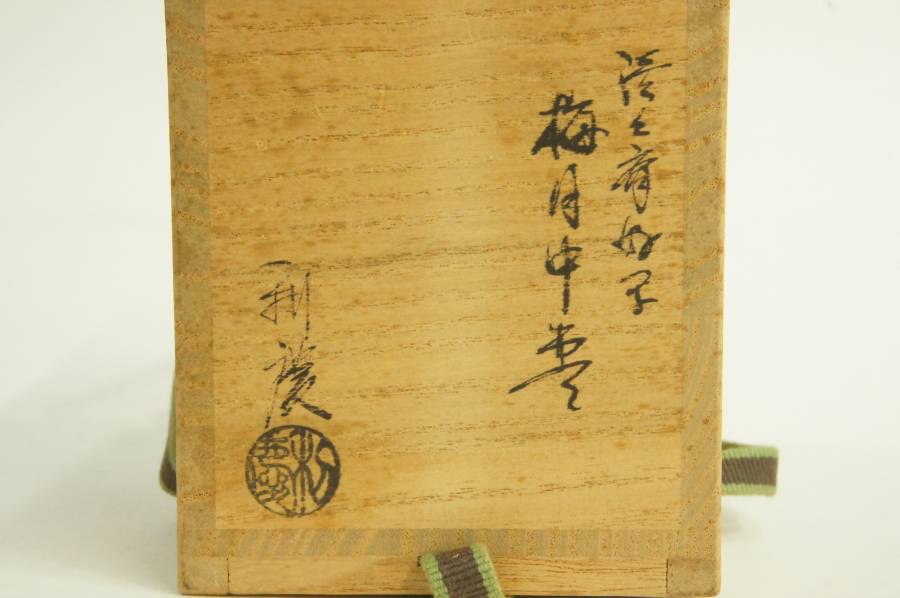 淡々斎好写
梅月中棗